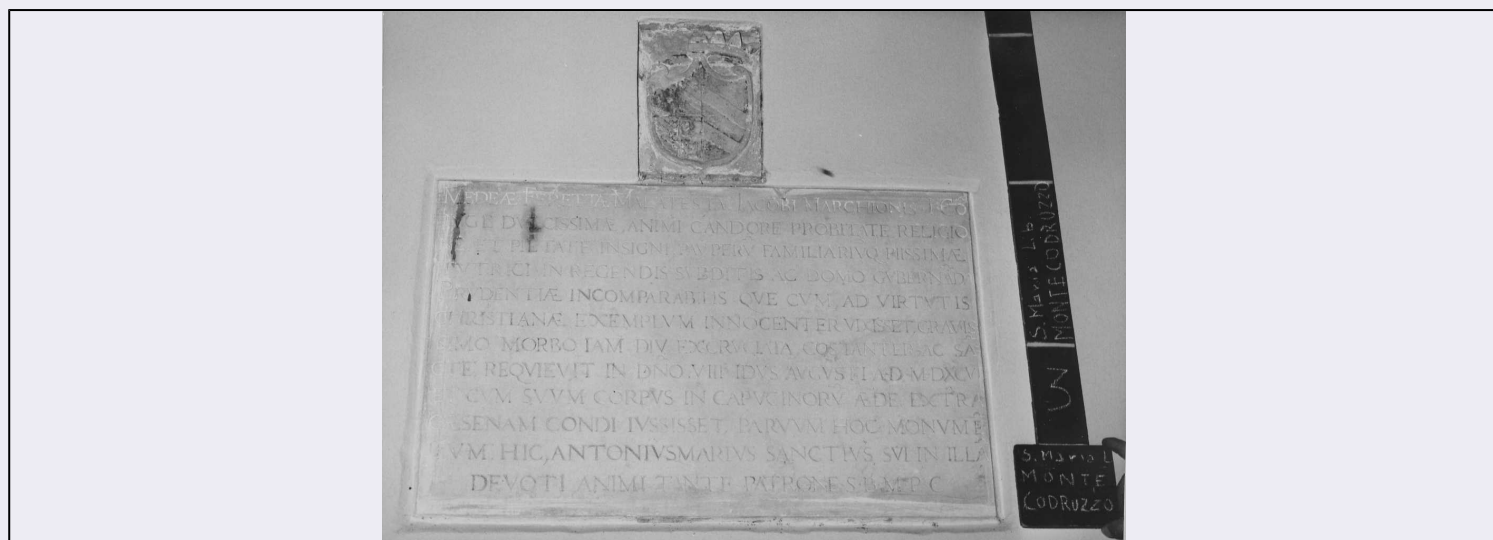 MEDEÆ MALATESTÆ IACOBI MARCHIONIS
DVLCISSIMÆ, ANIMI CANDORE PROBITATE RELIGIO
ET PIETATE INSIGNI PAVPERV FAMILIARIVQ PIISSIMÆ
IN REGENDIS SVBDITIS AC DOMO GVBERNAD
INCOMPARABILIS QVE CVM AD VIRTVTIS
EXEMPLVM INNOCENTER VIXISSET GRAVIS
MORBO IAM DIV EXCRVCIATA COSTANTER AC SA
REQVIEVIT IN DNO VIII IDVS AVGVSTI A D M D XCV
CVM SVVM CORPVS IN CAPVCINORV ÆDE EXTRA
CONDI IVSSISSET PARVVM HOC MONVME
HIC, ANTONIVSMARIVS SANCTIVS SVI IN ILLA
DEVOTI ANIMI TANTE PATRONE
S. Maria L.b
MONTECODRUZZO
S. Maria L
MONTE
CODRUZZO